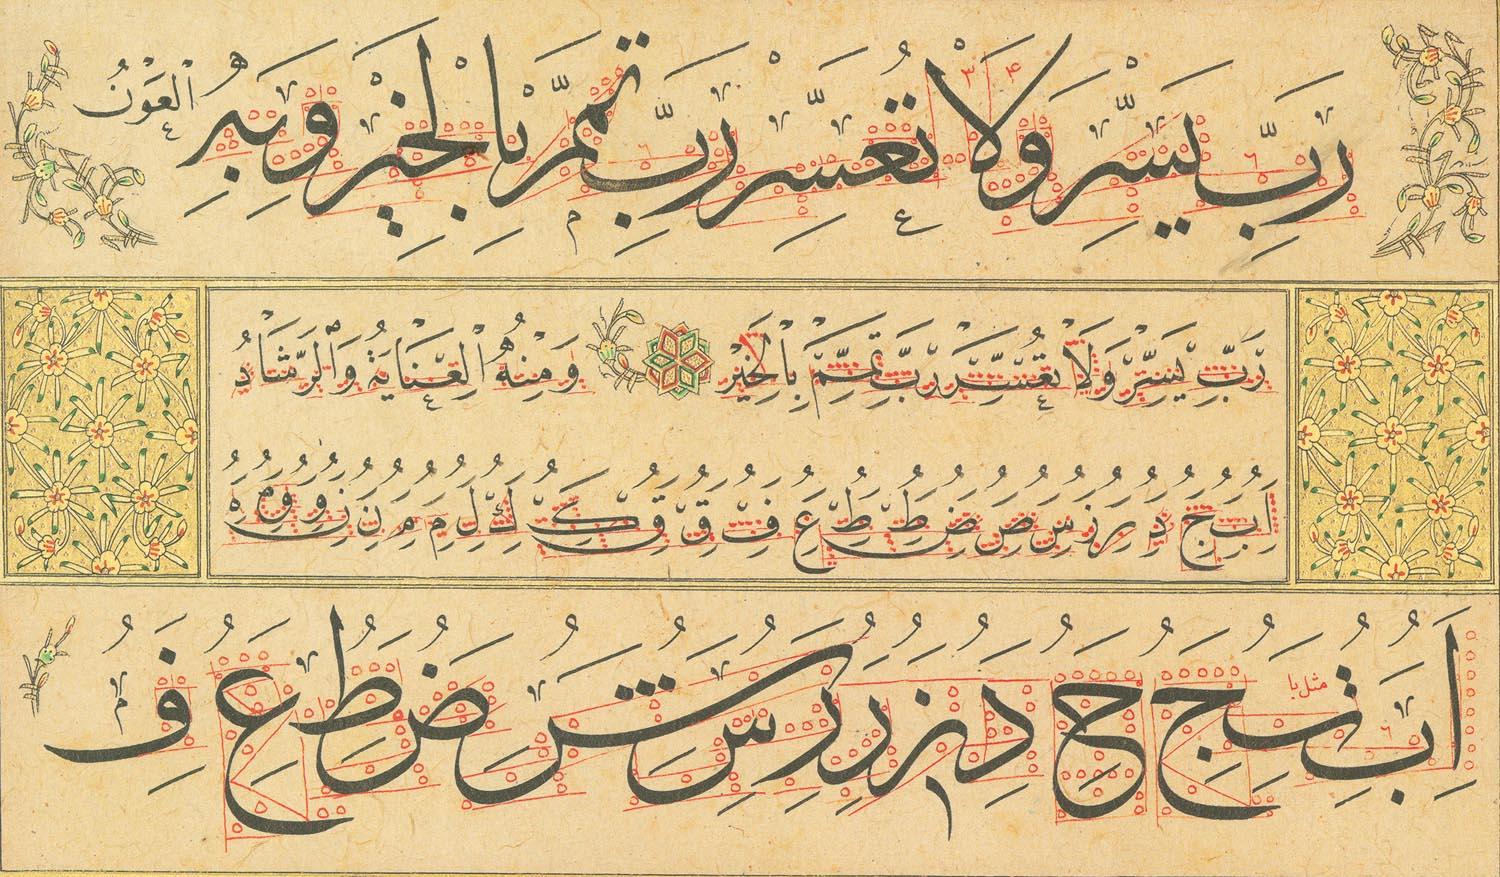 رَبِّ يَسِّرْ وَلَا تُعَسِّرْ رَبِّ تَمِّمْ بِالْخَيْرِ وَبِهِ الْعَوْنُ
رَبِّ يَسِّرْ وَلَا تُعَسِّرْ رَبِّ تَمِّمْ بِالْخَيْرِ وَمِنْهُ الْعِنَايَةُ وَالرَّشَادُ
ا ب ج د ر ز س ص ض ط ط ع ف ق ق ك ك ل م م ن ن و و م ه
ا ب ت ج ح د ز ر ر س ش ض ط ع ف
مثل با